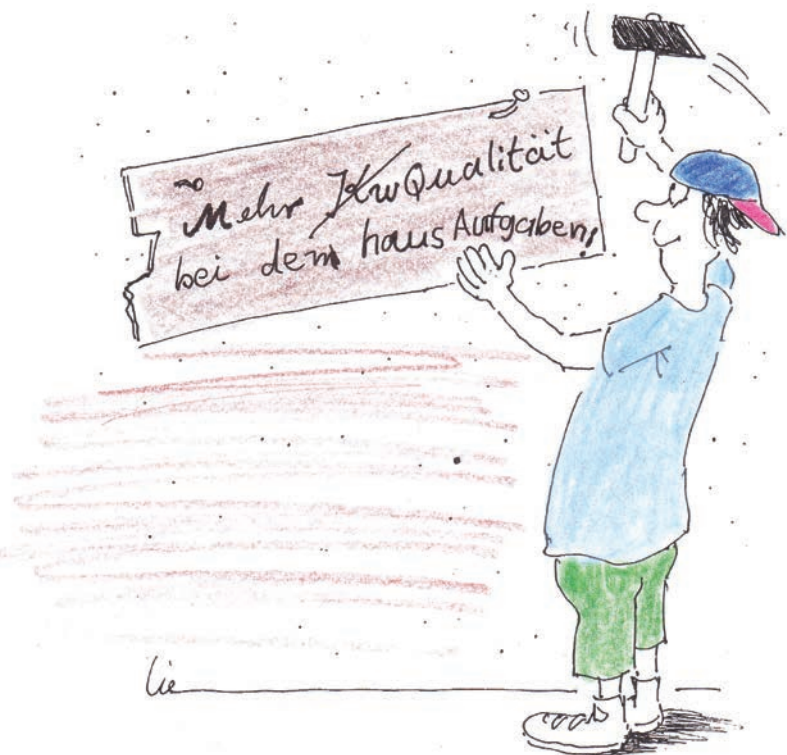 Mehr KwQualität
bei dem hausAufgaben!
lie